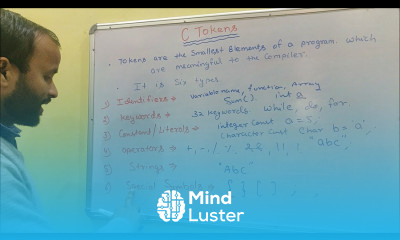 C Tokens
• Tokens are the Smallest Elements of a program. Which
are meaningful to the Compiler.
• It is Six types
1) Identifiers → variable name, function, Array
Sum() int a
2) Keywords → 32 Keywords while, do, for
3) Constant/Literals → integer Const a = 5;
Character Const Char b = 'a';
4) Operators → +, -, /, %, &&, ||, ! "abc"
5) Strings → "Abc"
6) Special Symbols → { } [ ]
Mind
Luster